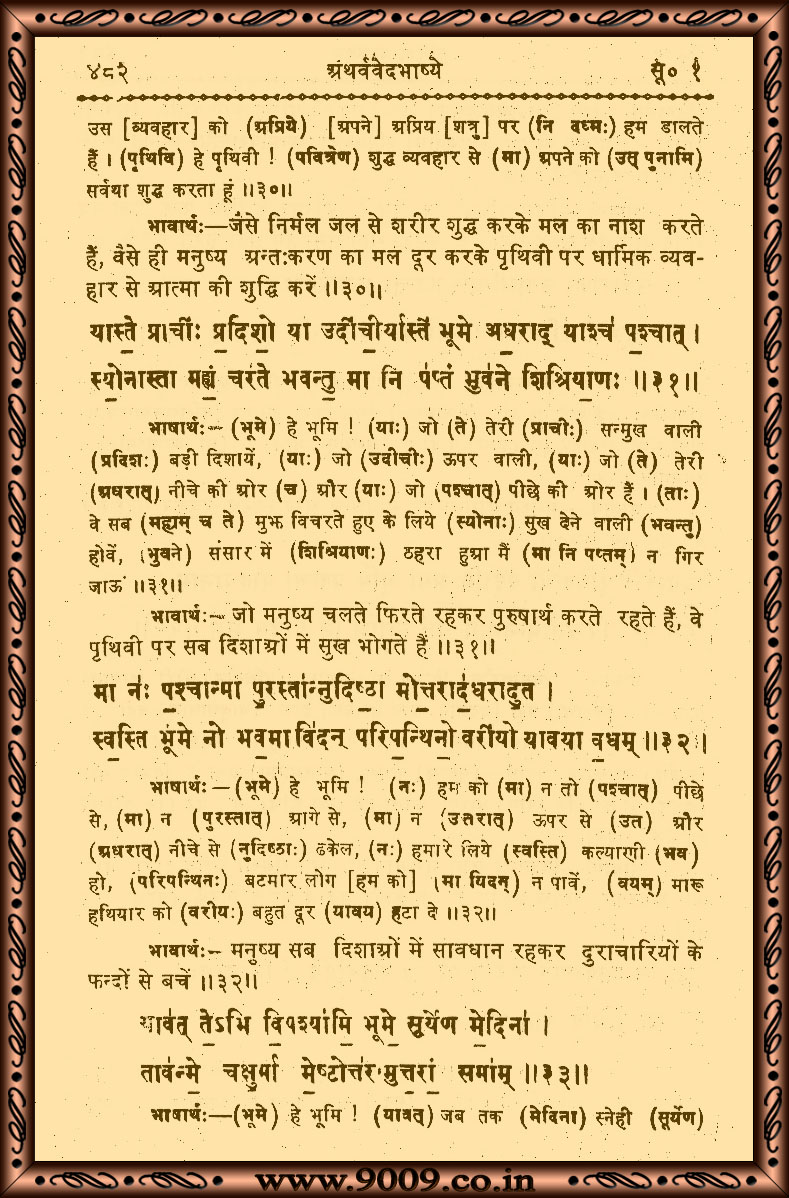 ४८२ अथर्ववेदभाष्ये सू० १
उस [व्यवहार] को (अप्रिये) [अपने] अप्रिय [शत्रु] पर (नि दध्मः) हम डालते
हैं । (पृथिवि) हे पृथिवी ! (पवित्रेण) शुद्ध व्यवहार से (मा) अपने को (उत् पुनामि)
सर्वथा शुद्ध करता हूं ॥३०॥
भावार्थः—जैसे निर्मल जल से शरीर शुद्ध करके मल का नाश करते
हैं, वैसे ही मनुष्य अन्तःकरण का मल दूर करके पृथिवी पर धार्मिक व्यव-
हार से आत्मा की शुद्धि करें ॥३०॥
यास्ते॒ प्राचीः॑ प्र॒दिशो॒ या उदी॑ची॒र्यास्ते॑ भूमे अध॒राद् याश्च॑ प॒श्चात् ।
स्यो॒नास्ता मह्यं॒ चर॑ते भवन्तु॒ मा नि प॑प्तं॒ भुव॑ने शिश्रिया॒णः ॥३१॥
भाषार्थः— (भूमे) हे भूमि ! (याः) जो (ते) तेरी (प्राचीः) सन्मुख वाली
(प्रदिशः) बड़ी दिशायें, (याः) जो (उदीचीः) ऊपर वाली, (याः) जो (ते) तेरी
(अधरात्) नीचे की ओर (च) और (याः) जो (पश्चात्) पीछे की ओर हैं । (ताः)
वे सब (मह्यम् च ते) मुझ विचरते हुए के लिये (स्योनाः) सुख देने वाली (भवन्तु)
होवें, (भुवने) संसार में (शिश्रियाणः) ठहरा हुआ मैं (मा नि पप्तम्) न गिर
जाऊं ॥३१॥
भावार्थः— जो मनुष्य चलते फिरते रहकर पुरुषार्थ करते रहते हैं, वे
पृथिवी पर सब दिशाओं में सुख भोगते हैं ॥३१॥
मा नः॑ प॒श्चान्मा पु॒रस्ता॑न्नुदिष्ठा॒ मोत्त॒राद॑ध॒रादु॒त ।
स्व॒स्ति भू॑मे नो भव॒मा वि॑दन् परिप॒न्थिनो॒ वरी॑यो यावया व॒धम् ॥३२।
भाषार्थः — (भूमे) हे भूमि ! (नः) हम को (मा) न तो (पश्चात्) पीछे
से, (मा) न (पुरस्तात्) आगे से, (मा) न (उतरात्) ऊपर से (उत) और
(अधरात्) नीचे से (नुदिष्ठाः) ढकेल, (नः) हमारे लिये (स्वस्ति) कल्याणी (भव)
हो, (परिपन्थिनः) बटमार लोग [हम को] (मा यिदन्) न पावें, (वयम्) मारू
हथियार को (वरीयः) बहुत दूर (यावय) हटा दे ॥३२॥
भावार्थः— मनुष्य सब दिशाओं में सावधान रहकर दुराचारियों के
फन्दों से बचें ॥३२॥
याव॑त् ते॒ऽभि वि॒पश्या॑मि॒ भूमे॒ सूर्ये॑ण मे॒दिना॑ ।
ताव॑न्मे॒ चक्षु॒र्मा मे॒ष्टोत्त॑रामुत्तरां॒ समा॑म् ॥३३॥
भाषार्थः—(भूमे) हे भूमि ! (यावत्) जब तक (मेदिना) स्नेही (सूर्येण)
www.9009.co.in